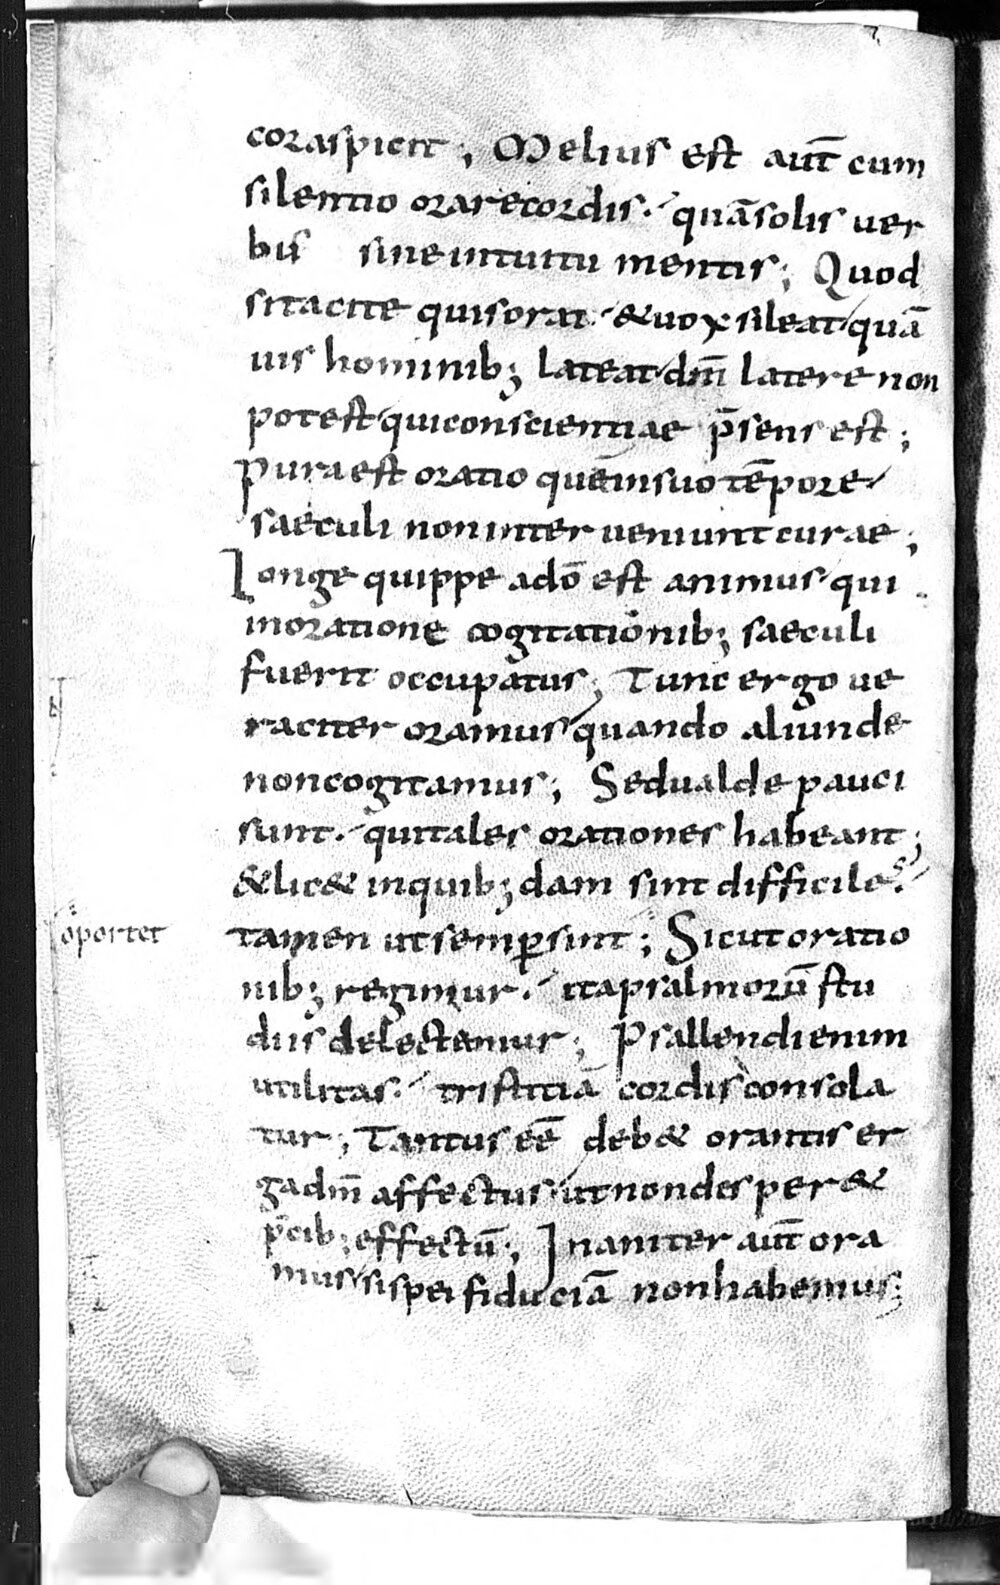 cor aspicit; Melius est aut̄ cum
silentio orare cordis. quā solis ver
bis sine intuitu mentis; Quod
si tacite quis orat. & vox sileat quā
vis hominib; lateat dm̄ latere non
potest qui conscientiae p̄sens est;
Pura est oratio quē in suo tēpore
saeculi non inter veniunt curae;
Longe quippe a dō est animus qui
in oratione cogitationib; saeculi
fuerit occupatus; Tunc ergo ve
raciter oramus quando aliunde
non cogitamus; Sed valde pauci
sunt. qui tales orationes habeant;
& lic& in quib; dam sint difficiles.
oportet tamen ut semp̄ sint; Sicut oratio
nib; regimur. ita psalmorū stu
diis delectemur; Psallendi enim
utilitas. tristitiā cordis consola
tur; Tantus eē deb& orantis er
ga dm̄ affectus ut non desper&
p̄cib; effectū; Inaniter aut̄ ora
mus si spei fiduciā non habemus;